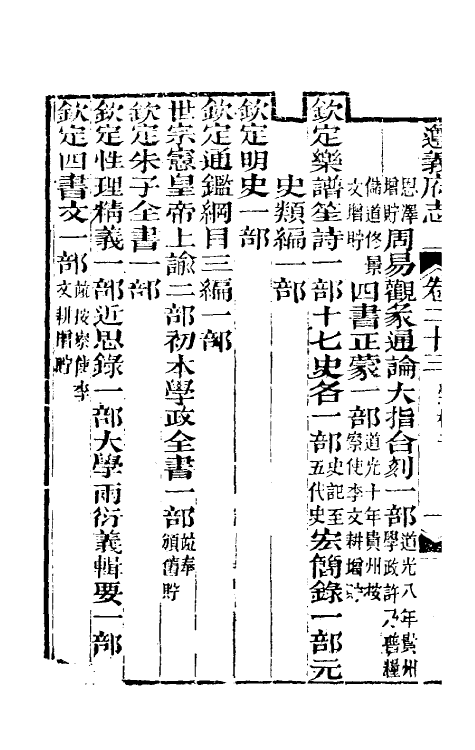 遵義府志 卷二十三
恩澤增貯周易觀象通論大指合刻一部道光八年貴州學政許乃普糧
儲道修景文增貯四書正蒙一部道光十年貴州按察使李文耕增
欽定樂譜笙詩一部十七史各一部史記至五代史宏簡錄一部元
史類編一部
欽定明史一部
欽定通鑑綱目三編一部
世宗憲皇帝上諭二部初本學政全書一部疏奉頒舊貯
欽定朱子全書一部
欽定性理精義一部近思錄一部大學雨衍義輯要一部
欽定四書文一部疏按察使李文耕增貯